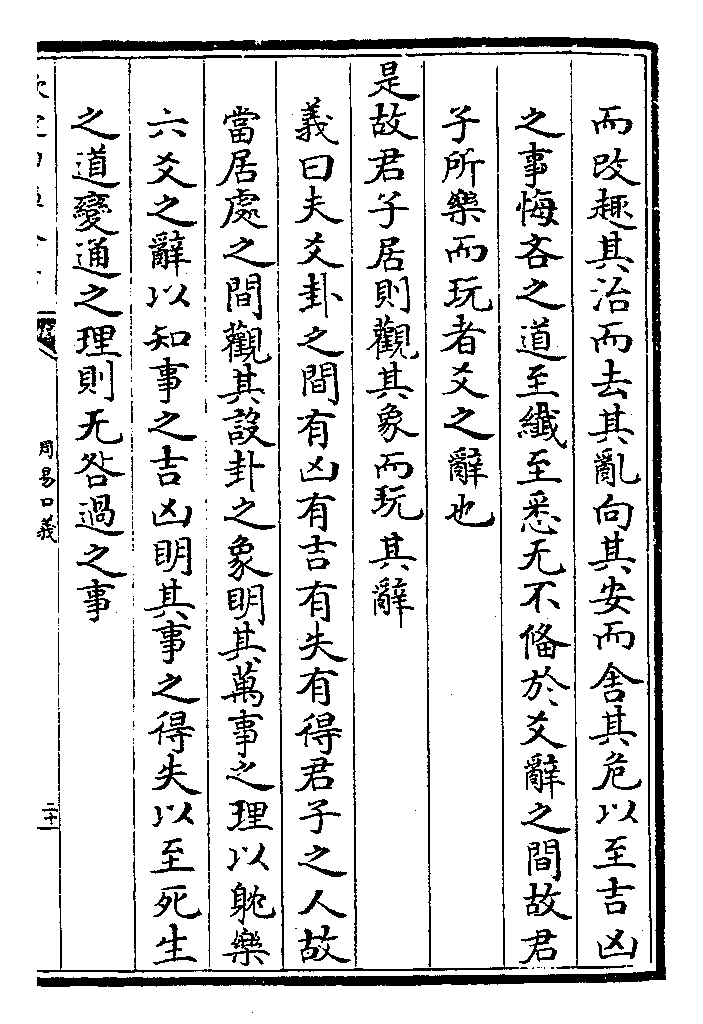 而改趣其治而去其亂向其安而舍其危以至吉凶
之事悔吝之道至纖至悉无不偹於爻辭之間故君
子所樂而玩者爻之辭也
是故君子居則觀其象而玩其辭
義曰夫爻卦之間有凶有吉有失有得君子之人故
當居處之間觀其設卦之象明其萬事之理以躭樂
六爻之辭以知事之吉凶明其事之得失以至死生
之道變通之理則无咎過之事
周易口義
二十一